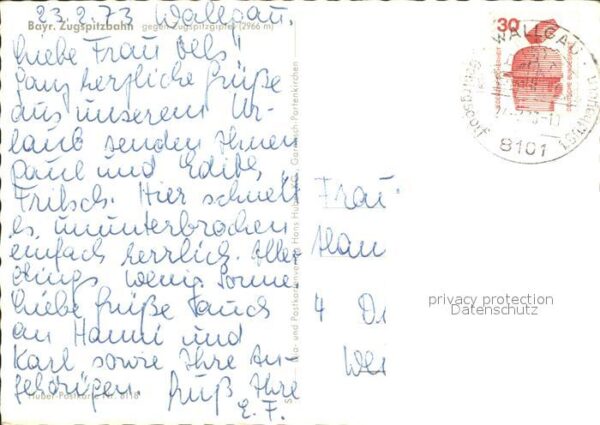 23.2.73 Wallgau.
Bayr. Zugspitzbahn gegen Zugspitzgipfel (2966 m)
Liebe Frau Oels!
ganz herzliche Grüße
aus unserem Ur-
laub senden Ihnen
Paul und Edith
Fritsch. Hier schneit
es ununterbrochen
einfach herrlich. Aller
dings wenig Sonne.
Liebe Grüße auch
an Hanni und
Karl sowie Ihre An-
gehörigen. Gruß Ihre
E. F.
Huber-Postkarte Nr. 8118
Foto- und Postkartenverlag Hans Huber, Garmisch-Partenkirchen
30
DEUTSCHE BUNDESPOST
WALLGAU
8101
Frau
4
privacy protection
Datenschutz